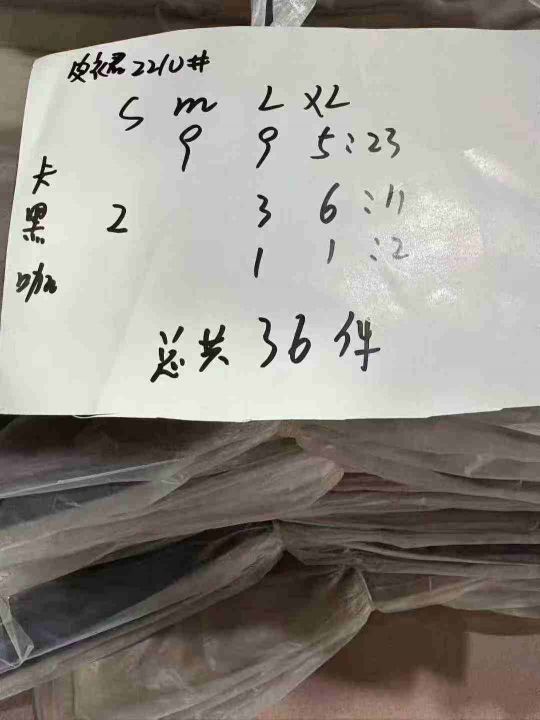 皮衣君2210#
S m L XL
卡 9 9 5:23
黑 2 3 6:11
咖 1 1:2
总共36件